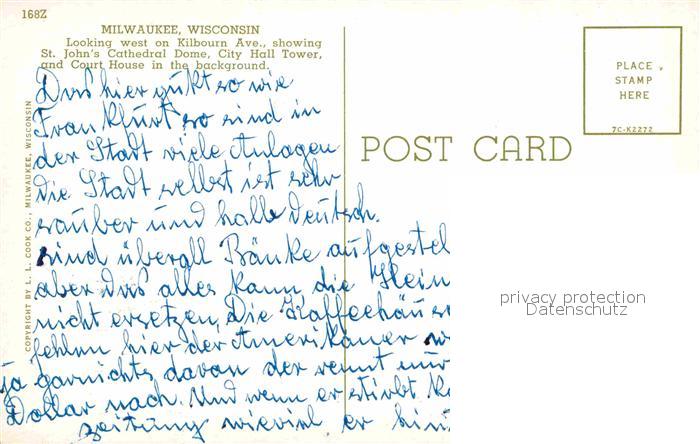 168Z
MILWAUKEE, WISCONSIN
Looking west on Kilbourn Ave., showing
St. John's Cathedral Dome, City Hall Tower,
and Court House in the background.
COPYRIGHT BY L. L. COOK CO., MILWAUKEE, WISCONSIN
POST CARD
PLACE
STAMP
HERE
7C-K2272
Das hier gukt so wie
Frankfurt so sind in
der Stadt viele Anlagen
die Stadt selbst ist sehr
sauber und halb deutsch.
sind überall Bänke aufgestel
aber das alles kann die Heim
nicht ersetzen, Die Kaffeehäus
fehlen hier der Amerikaner w
ja garnichts davon der rennt nur
Dollar nach. Und wenn er stirbt
zeitung wieviel er hint
privacy protection
Datenschutz